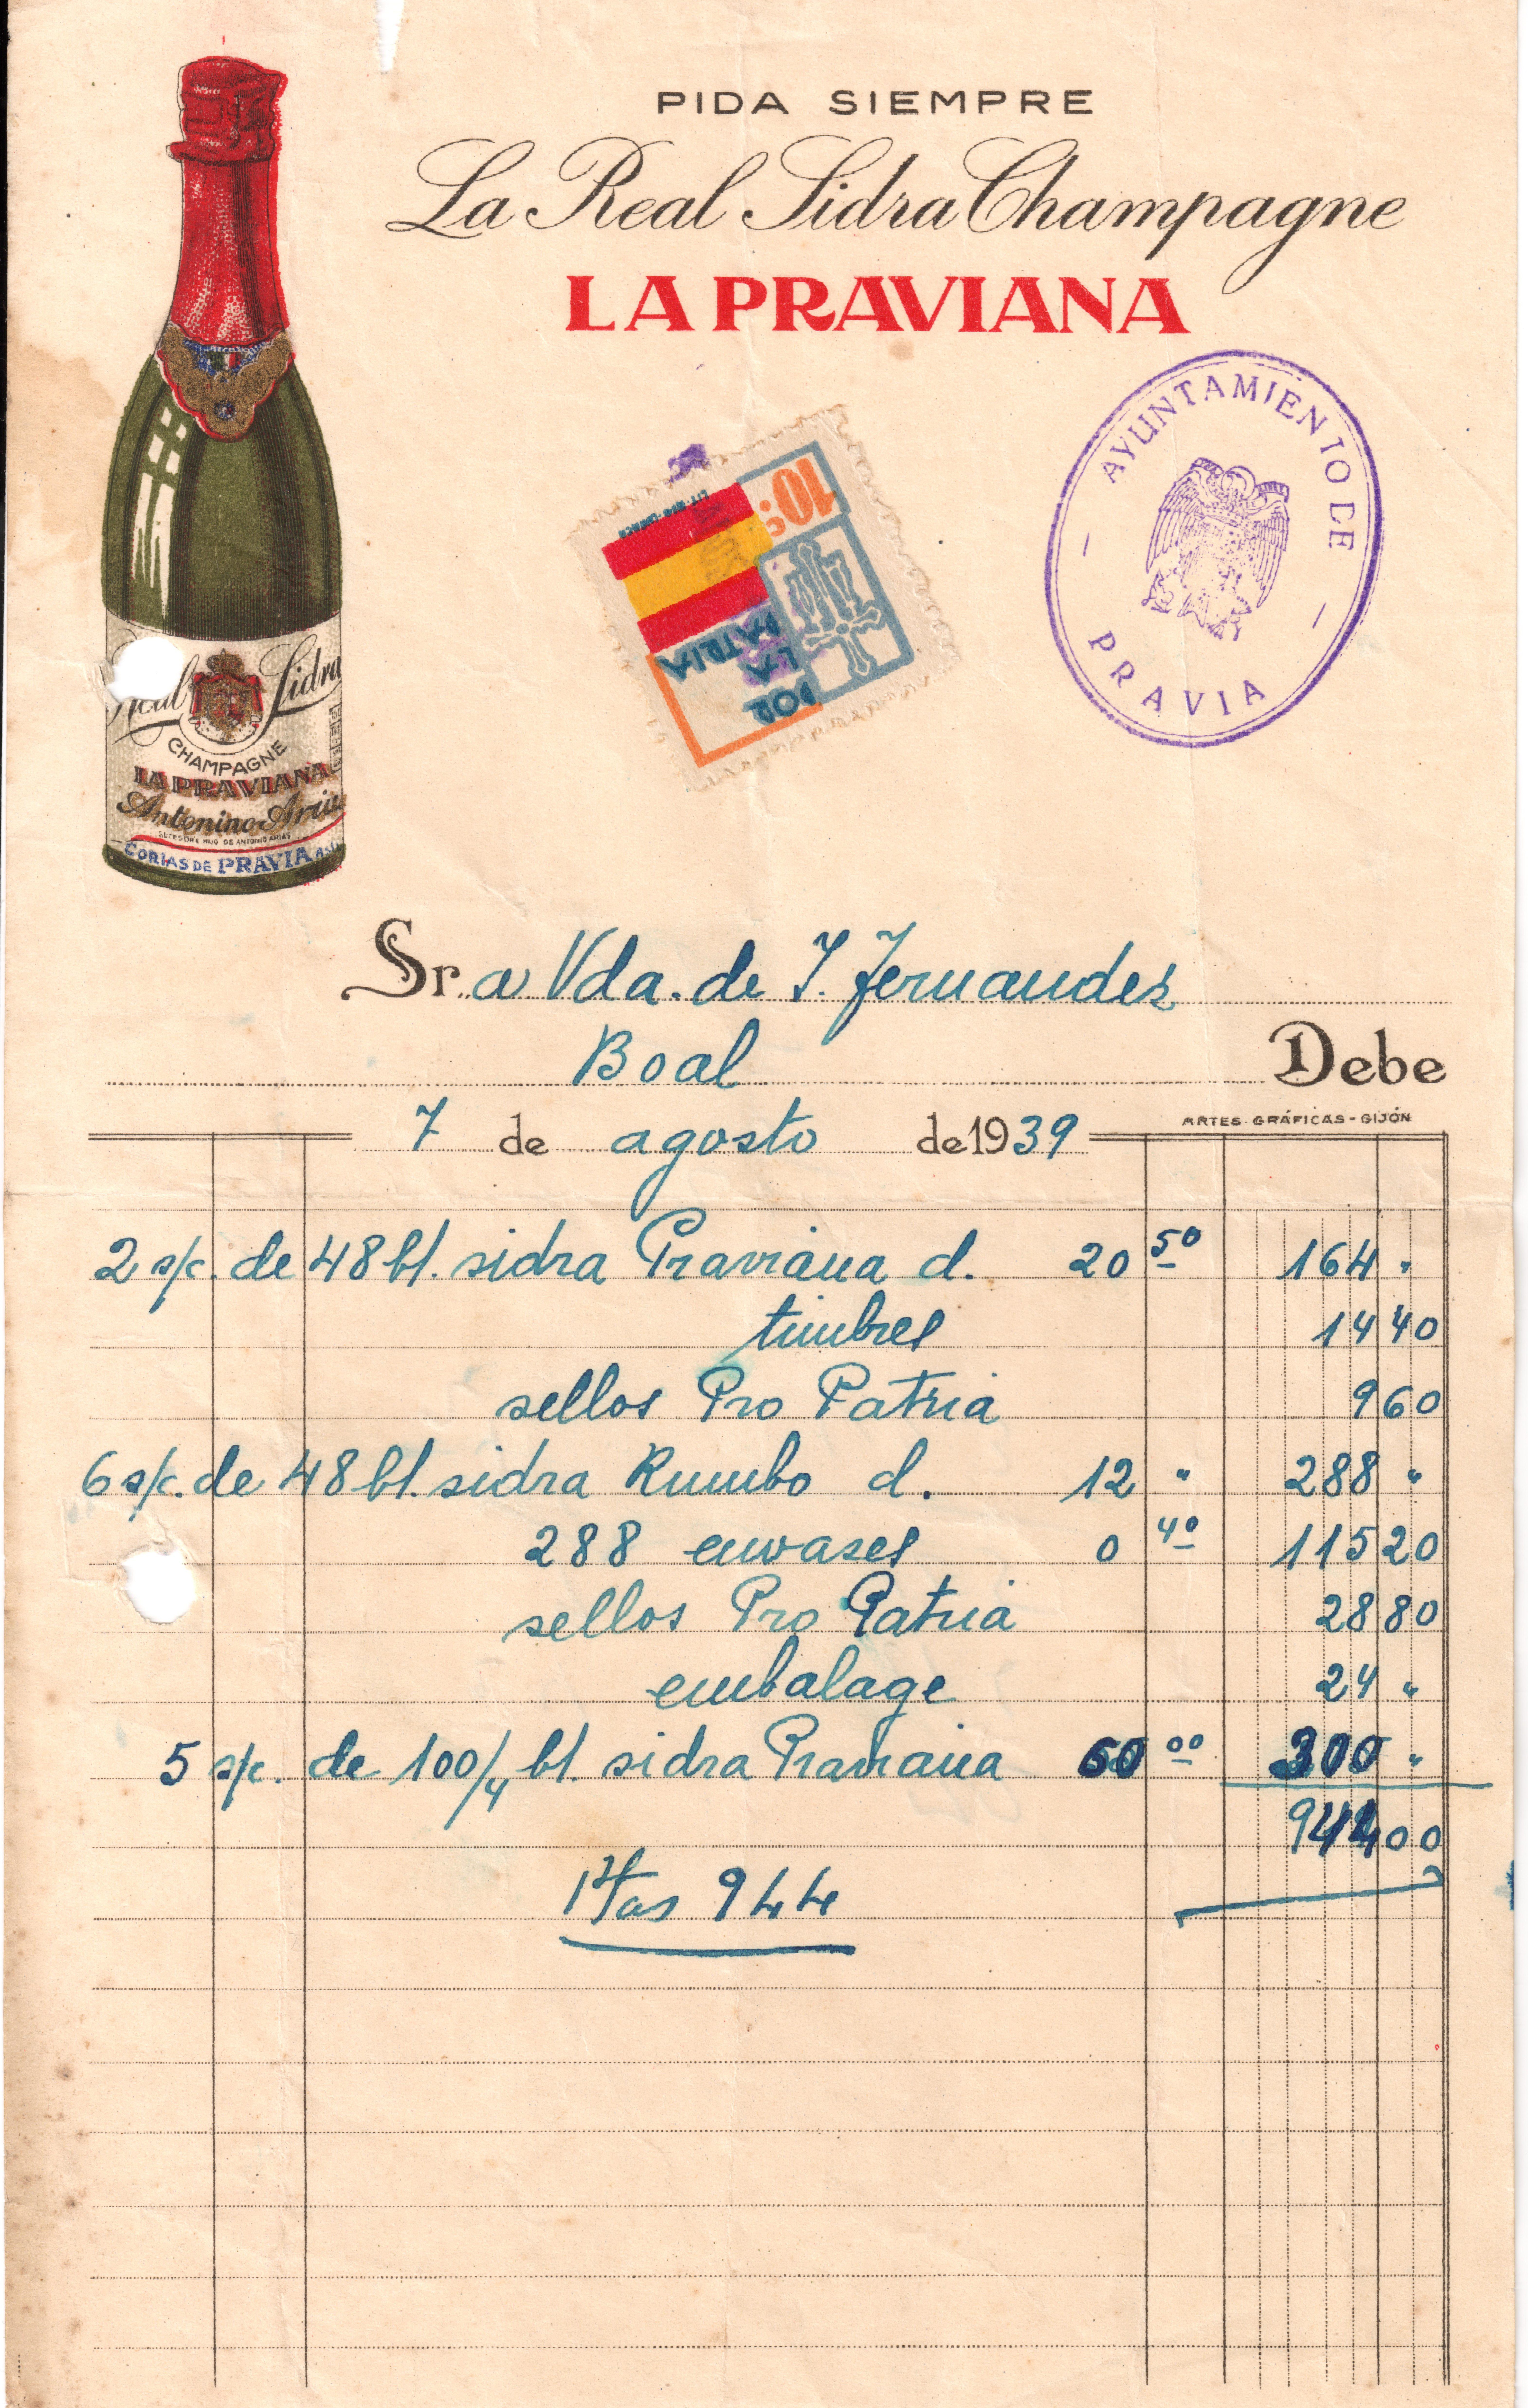 PIDA SIEMPRE
La Real Sidra Champagne
LA PRAVIANA
10
POR
LA
PATRIA
AYUNTAMIENTO DE
PRAVIA
Real Sidra
CHAMPAGNE
LA PRAVIANA
Antonino Arias
SUCESOR E HIJO DE ANTONIO ARIAS
CORIAS DE PRAVIA
Sr.a Vda. de J. Fernandez
Boal
Debe
ARTES GRÁFICAS - GIJÓN
7 de agosto de 1939
2 s/c. de 48 bl. sidra Praviana d. 20 50 164 "
timbres 14 40
sellos Pro Patria 9 60
6 s/c. de 48 bl. sidra Rumbo d. 12 " 288 "
288 envases 0 40 115 20
sellos Pro Patria 28 80
embalage 24 "
5 s/c. de 100/4 bl. sidra Praviana 60 00 300 "
944 00
Ptas 944